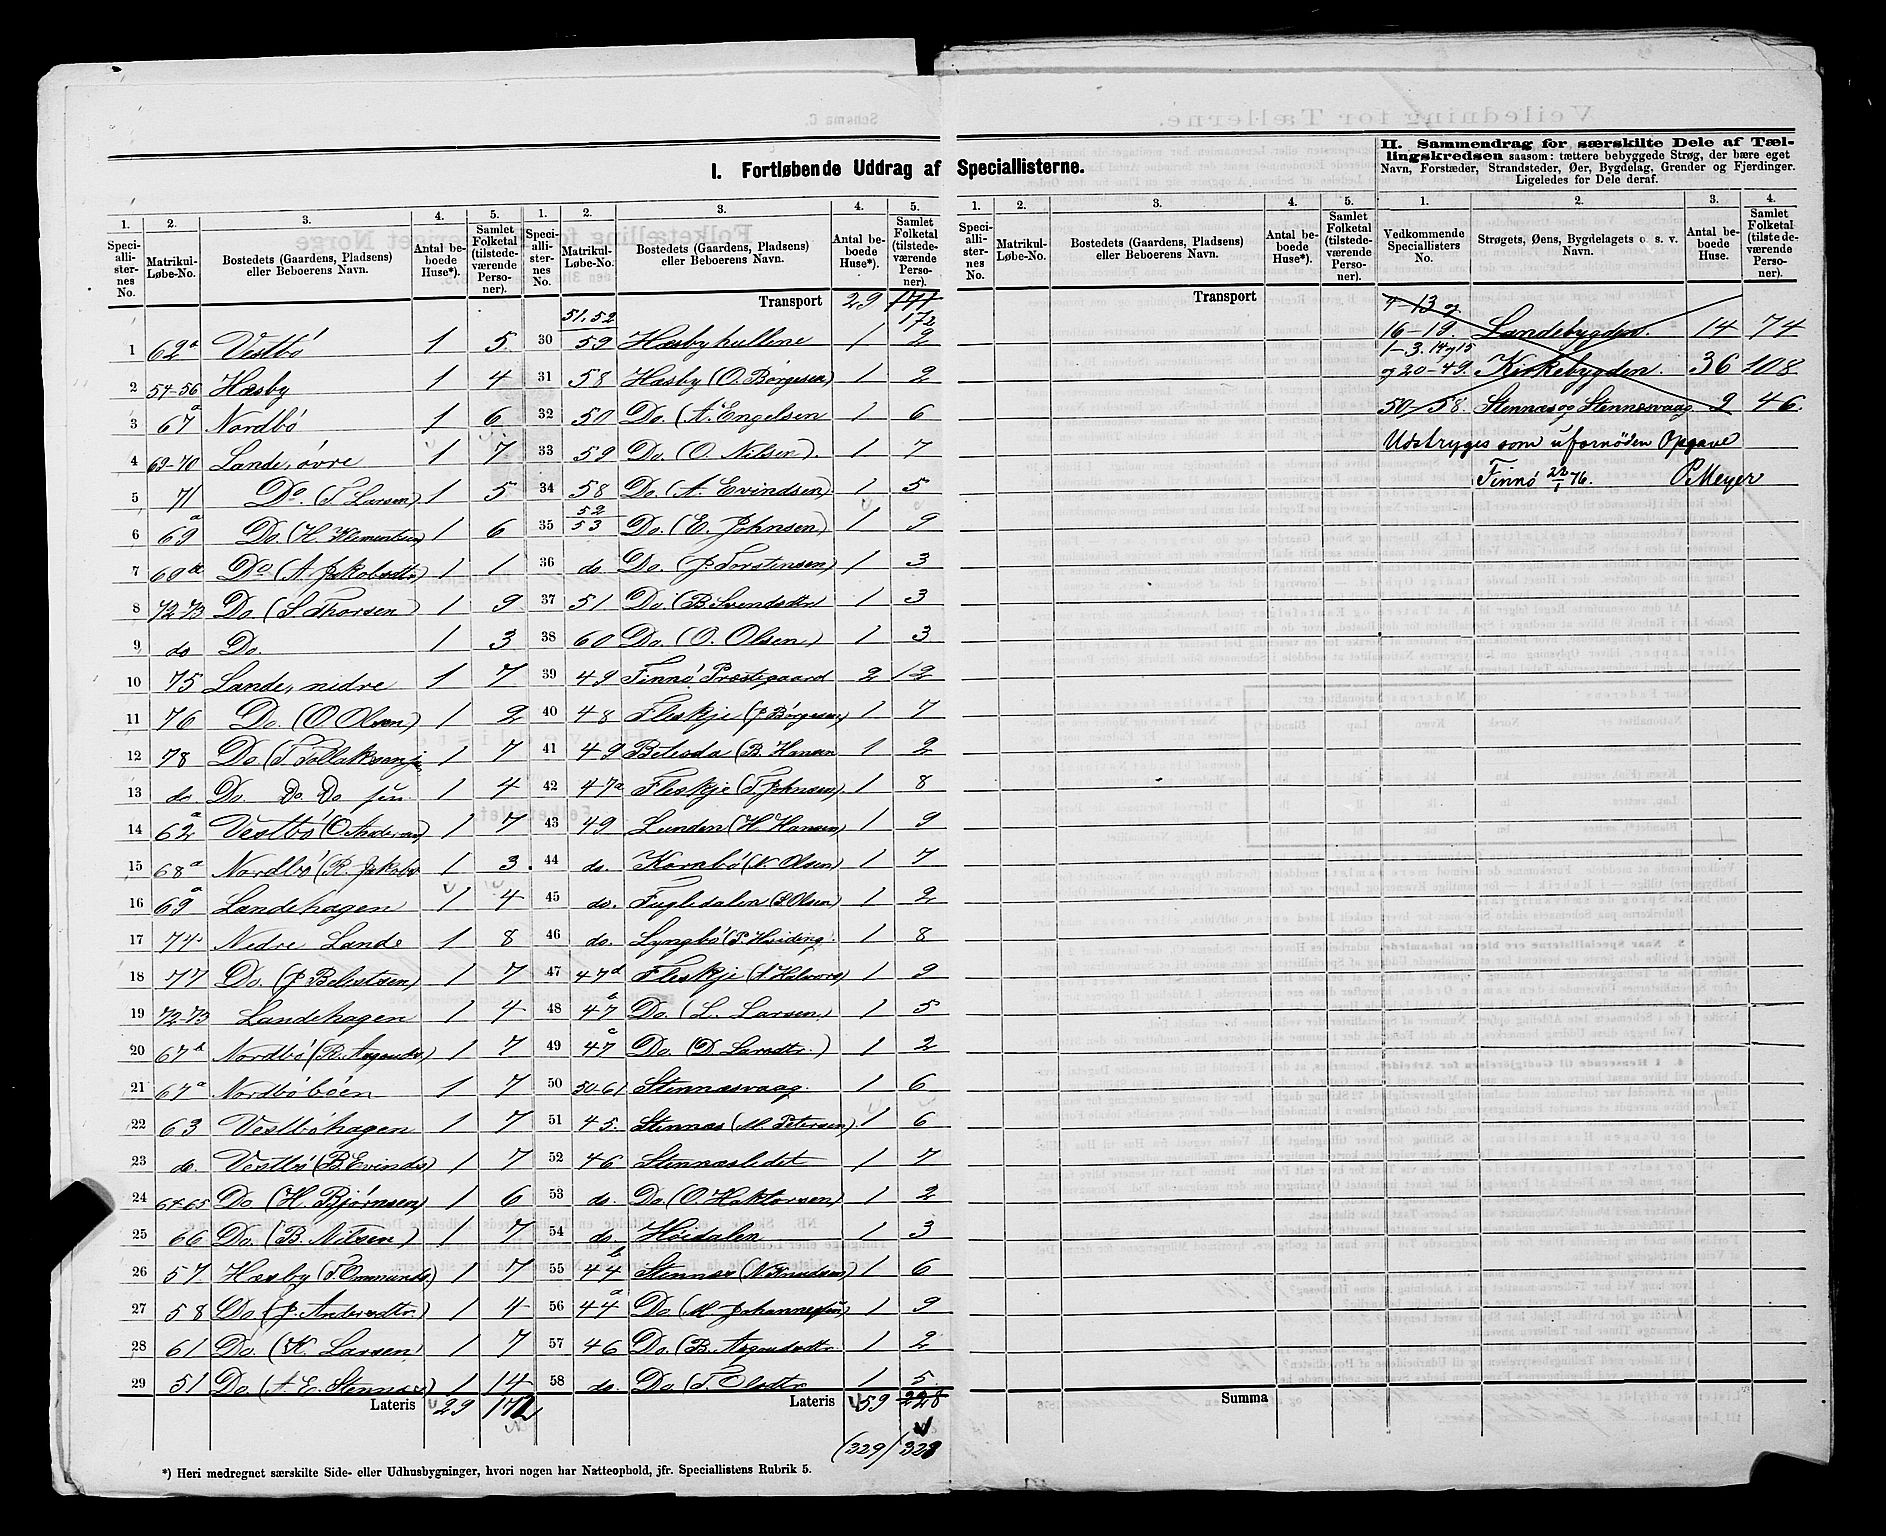 I. Fortløbende Uddrag af Speciallisterne.
1. Speciallisternes No. 2. Matrikul-Løbe-No. 3. Bostedets (Gaardens, Pladsens) eller Beboerens Navn. 4. Antal beboede Huse*). 5. Samlet Folketal (tilstedeværende Personer).
1 62a Vestbö 1 5
2 54-56 Hæsby 1 4
3 67a Nordbö 1 6
4 69-70 Lande, övre 1 7
5 71 Do. (T. Larsen) 1 5
6 69a Do. (H. Klementsen) 1 6
7 69a Do (A. Jakobsdtr) 1 1
8 72-73 Do. (S. Thorsen) 1 9
9 do Do. 1 3
10 75 Lande, nedre 1 7
11 76 Do. (O. Olsen) 1 2
12 78 Do (T. Tollaksen 1 7
13 do. Do. Do. Do jun. 1 4
14 62a Vestbö (O. Andersen) 1 7
15 68a Nordbö (R. Jakobs 1 3
16 69a Landehagen 1 4
17 74 Nedre Lande 1 8
18 77 Do. (J. Belestsen) 1 7
19 72-73 Landehagen 1 4
20 67d Nordbö (R. Aagaards) 1 7
21 67a Nordböböen 1 7
22 63 Vestböhagen 1 7
23 do. Vestbö (B. Evinds) 1 7
24 64-65 Do (H. Bjørnsen) 1 6
25 66 Do. (B. Nilsen) 1 7
26 57 Hæsby (T. Ommunds) 1 7
27 58 Do (J. Andersdtr.) 1 4
28 61 Do. (K. Larsen) 1 7
29 51 Do. (A. E. Stennæs) 1 14
Lateris 29 172
1. Speciallisternes No. 2. Matrikul-Løbe-No. 3. Bostedets (Gaardens, Pladsens) eller Beboerens Navn. 4. Antal beboede Huse*). 5. Samlet Folketal (tilstedeværende Personer).
Transport 29 171
172
30 51.52 59 Hæsbyhullene 1 2
31 58 Hæsby (O. Børgesen) 1 2
32 50 Do. (A. Engelsen 1 6
33 59 Do. (O. Nilsen). 1 7
34 58 Do. (A. Evindsen) 1 5
35 52 53 Do. (E. Johnsen) 1 9
36 do Do. (J. Torstensen) 1 3
37 51 Do. (B. Svendsdtr 1 3
38 60 Do. (O. Olsen) 1 3
39 49 Finnö Præstegaard 2 12
40 48 Fleskje (J. Börgesen) 1 7
41 49 Betesda (B. Hansen 1 2
42 47a Fleskje (T. Johnsen) 1 8
43 49 Lunden (H. Hansen) 1 9
44 do. Kornbö (N. Olsen) 1 7
45 do. Fugledalen (S. Olsen) 1 2
46 do. Lyngbö (P. Heiding. 1 8
47 47d Fleskje (S. Halvors) 1 9
48 47a Do. (L. Larsen) 1 5
49 47c Do. (D. Larsdtr.) 1 2
50 50-61 Stennæsvaag. 1 6
51 45. Stennæs (M. Petersen) 1 6
52 46 Stennæsledet 1 7
53 do. Do. (O. Haktorsen) 1 2
54 do. Höidalen 1 3
55 44b Stennæs (N. Knudsen) 1 6
56 44a Do. (M. Johannessen) 1 9
57 46 Do. (B. Aagaardsdtr 1 2
58 do. Do (T. Olsdtr 1 5
Lateris 59 228
(329) 328
*) Heri medregnet særskilte Side- eller Udhusbygninger, hvori nogen har Natteophold, jfr. Speciallistens Rubrik 5.
1. Speciallisternes No. 2. Matrikul-Løbe-No. 3. Bostedets (Gaardens, Pladsens) eller Beboerens Navn. 4. Antal beboede Huse*). 5. Samlet Folketal (tilstedeværende Personer).
Transport
Summa
II. Sammendrag for særskilte Dele af Tællingskredsen saasom: tættere bebyggede Strøg, der bære eget
Navn, Forstæder, Strandsteder, Øer, Bygdelag, Grender og Fjerdinger.
Ligeledes for Dele deraf.
1. Vedkommende Speciallisters No. 2. Strøgets, Øens, Bygdelagets o. s. v. Navn. 3. Antal beboede Huse. 4. Samlet Folketal (tilstedeværende Personer).
4-13 og
16-19 Landebygden. 14 74
1-3. 14 og 15
og 20-49. Kirkebygden 36 108
50-58. Stennæs og Stennæsvaag 9 46.
Udstryges som ufornöden Opgave
Finnö 22/1 76. P. Meyer